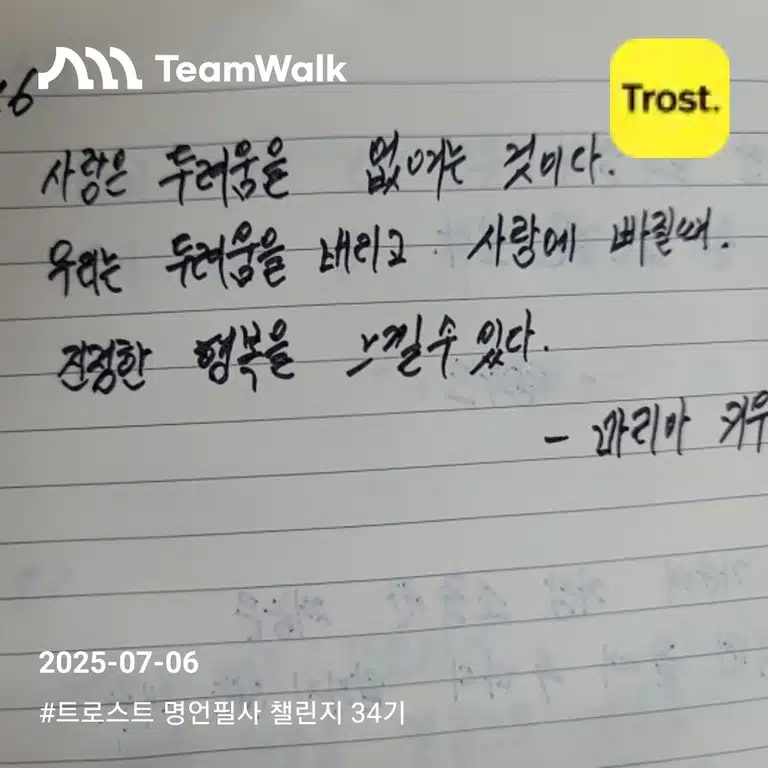 TeamWalk
Trost.
6
사랑은 두려움을 없애는 것이다.
우리는 두려움을 버리고 사랑에 빠질때.
진정한 행복을 느낄수 있다.
- 마리아 키우
2025-07-06
#트로스트 명언필사 챌린지 34기